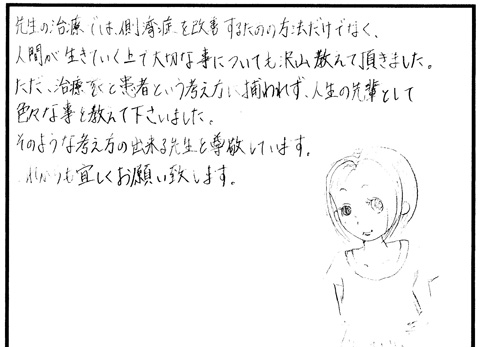 先生の治療では、側湾症を改善するための方法だけでなく、
人間が生きていく上で大切な事についても沢山教えて頂きました。
ただ、治療家と患者という考え方に捕われず、人生の先輩として
色々な事を教えて下さいました。
そのような考え方の出来る先生を尊敬しています。
これからも宜しくお願い致します。